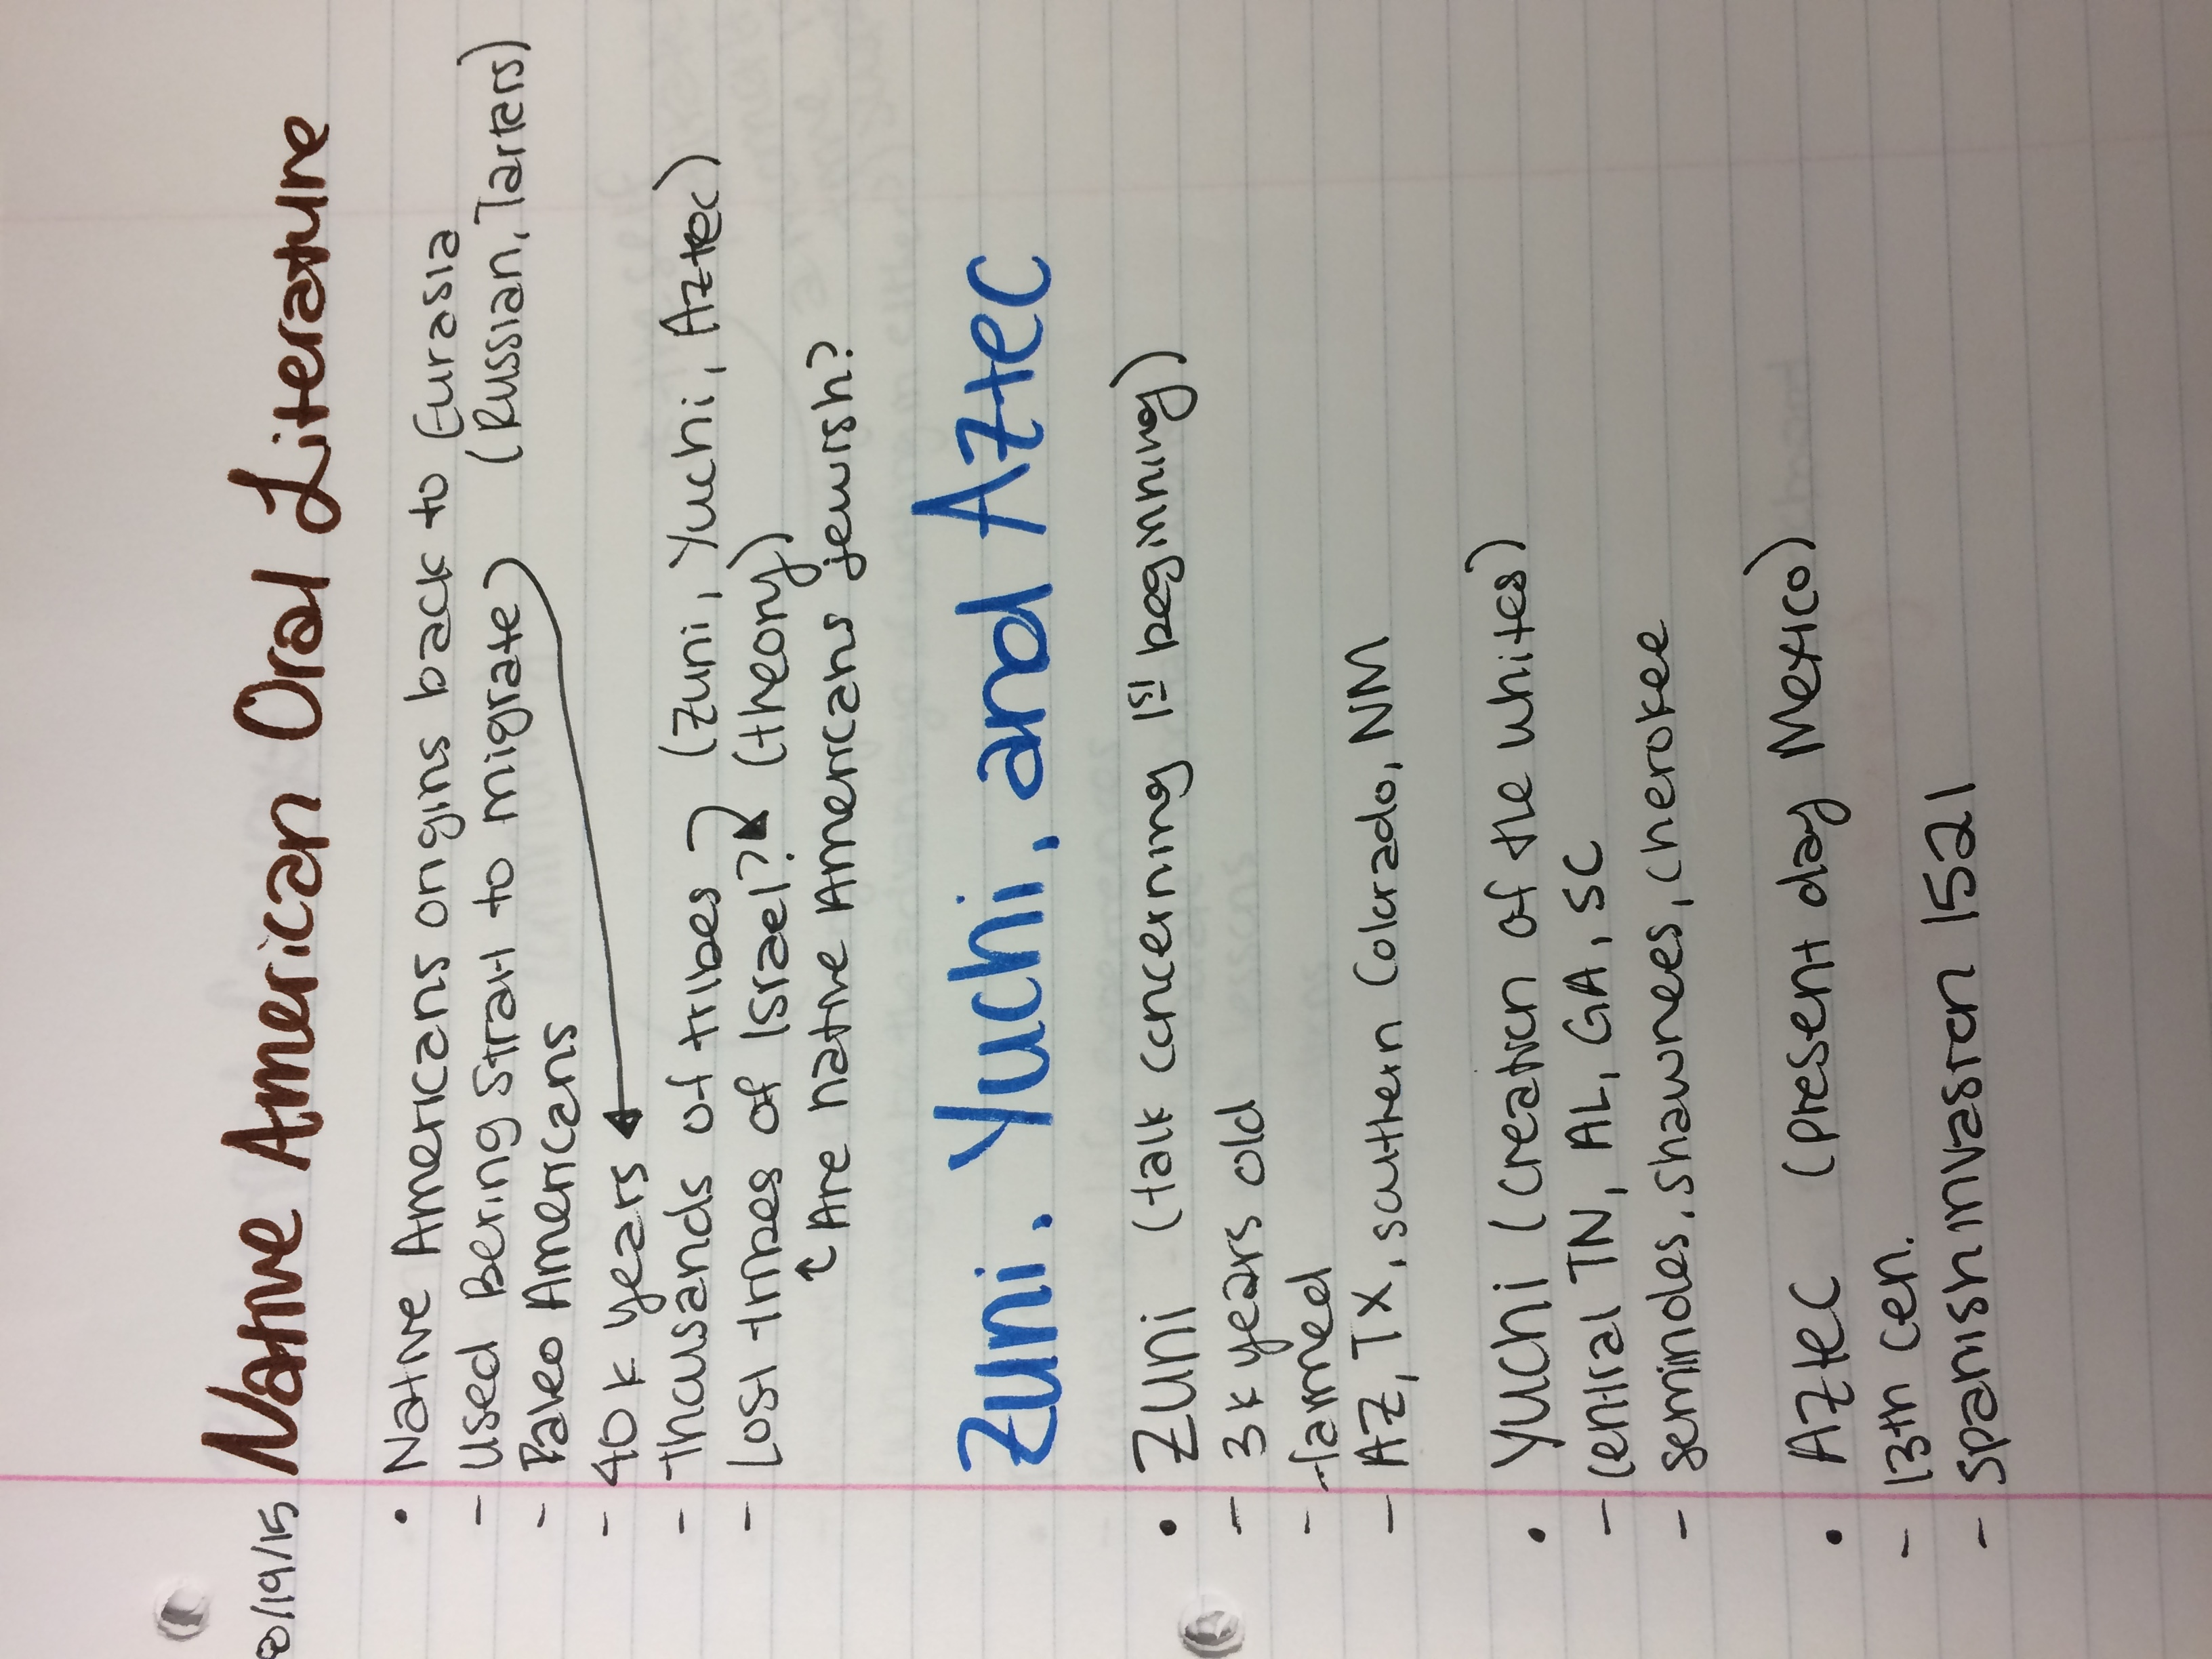 8/19/15 Native American Oral Literature
• Native Americans origins back to Eurasia
- used Bering Strait to migrate (Russian, Tarters)
- Paleo Americans
- 40k years
- Thousands of tribes (Zuni, Yuchi, Aztec)
- Lost tribes of Israel? (theory)
↳ Are native Americans jewish?
Zuni, Yuchi, and Aztec
• Zuni (talk concerning 1st beginning)
- 3k years old
- farmed
- AZ, TX, southern Colorado, NM
• Yuchi (creation of the whites)
- central TN, AL, GA, SC
- seminoles, shawnees, cherokee
• Aztec (present day Mexico)
- 13th cen.
- spanish invasion 1521